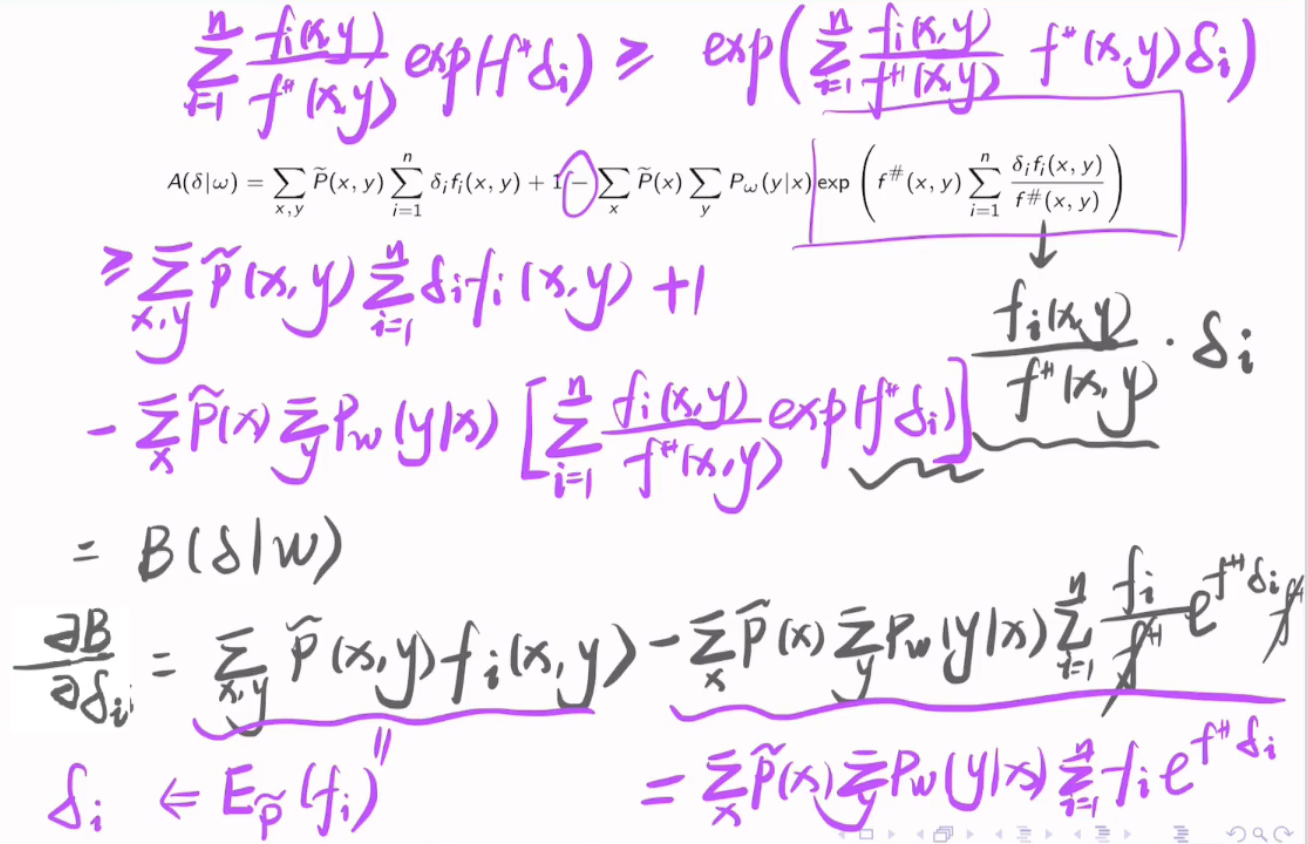 ∑_{i=1}^{n} f_i(x,y)/f^#(x,y) exp(f^# δ_i) ≥ exp(∑_{i=1}^{n} f_i(x,y)/f^#(x,y) f^#(x,y) δ_i)
A(δ|ω) = ∑_{x,y} P̃(x, y) ∑_{i=1}^{n} δ_i f_i(x, y) + 1 − ∑_x P̃(x) ∑_y P_ω(y|x) exp ( f^#(x, y) ∑_{i=1}^{n} δ_i f_i(x, y) / f^#(x, y) )
≥ ∑_{x,y} P̃(x,y) ∑_{i=1}^{n} δ_i f_i(x,y) + 1
f_i(x,y)/f^#(x,y) · δ_i
- ∑_x P̃(x) ∑_y P_w(y|x) [∑_{i=1}^{n} f_i(x,y)/f^#(x,y) exp(f^# δ_i)]
= B(δ|w)
∂B/∂δ_i = ∑_{x,y} P̃(x,y) f_i(x,y) - ∑_x P̃(x) ∑_y P_w(y|x) ∑_{i=1}^{n} f_i/f^# e^{f^# δ_i} f^#
δ_i ⇐ E_P̃(f_i) = ∑_x P̃(x) ∑_y P_w(y|x) ∑_{i=1}^{n} f_i e^{f^# δ_i}